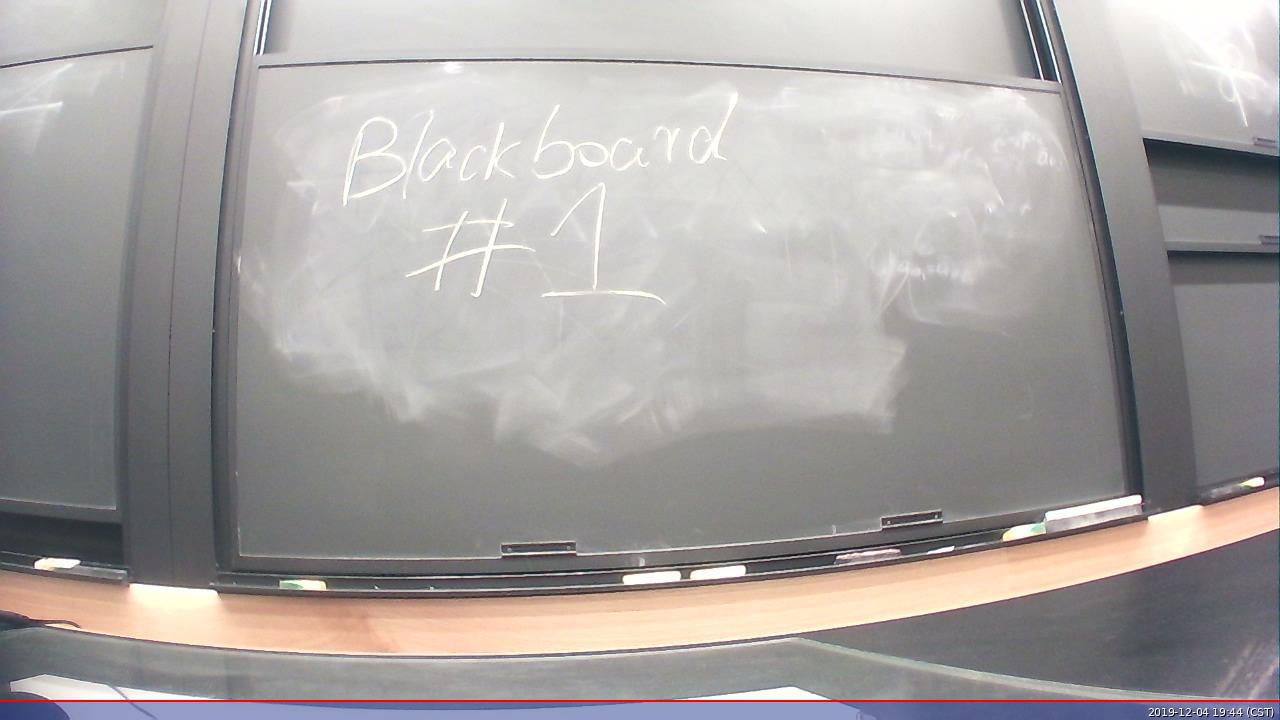 Blackboard
#1
2019-12-04 19:44 (CST)